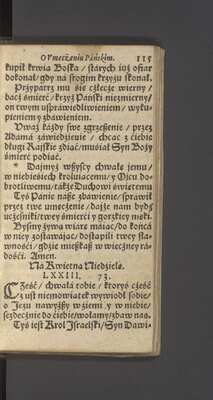 O Umęczeniu Páńskim. 115
kupił krwią Boską / stárych iuż ofiar
dokonał / gdy ná srogim krzyżu skonał.
Przypátrz mu się człecze wierny /
bacz śmierć / krzyż Páński niezmierny /
on twym uspráwiedliwieniem / wyku-
pieniem y zbáwieniem.
Uważ káżdy swe zgrzeszenie / przez
Adámá záwiedzienie / chcąc z ciebie
długi Ráyskie zdiąć / musiał Syn Boży
śmierć podiąć.
* Daymyż wszyscy chwałę iemu /
w niebiesiech kroluiącemu / y Oycu do-
brotliwemu / tákże Duchowi świętemu
Tyś Pánie násze zbáwienie / spráwił
przez twe umęczenie / dayże nam bydź
uczesniki / twey śmierci y gorzkiey męki.
Byśmy żywą wiárę máiąc / do końcá
w niey zostawáiąc / dostąpili twey sła-
wności / gdzie mięszkasz w wieczney rá-
dości. Amen.
Ná Kwietną Niedzielę.
LXXIII. 73.
CZeść / chwałá tobie / ktoryś cześć
z ust niemowiątek wywiodł sobie /
o Jezu nawyższy w ziemi y w niebie /
serdecznie do ciebie / wołamy / zbaw nas.
Tyś iest Krol Izráelski / Syn Dawi-